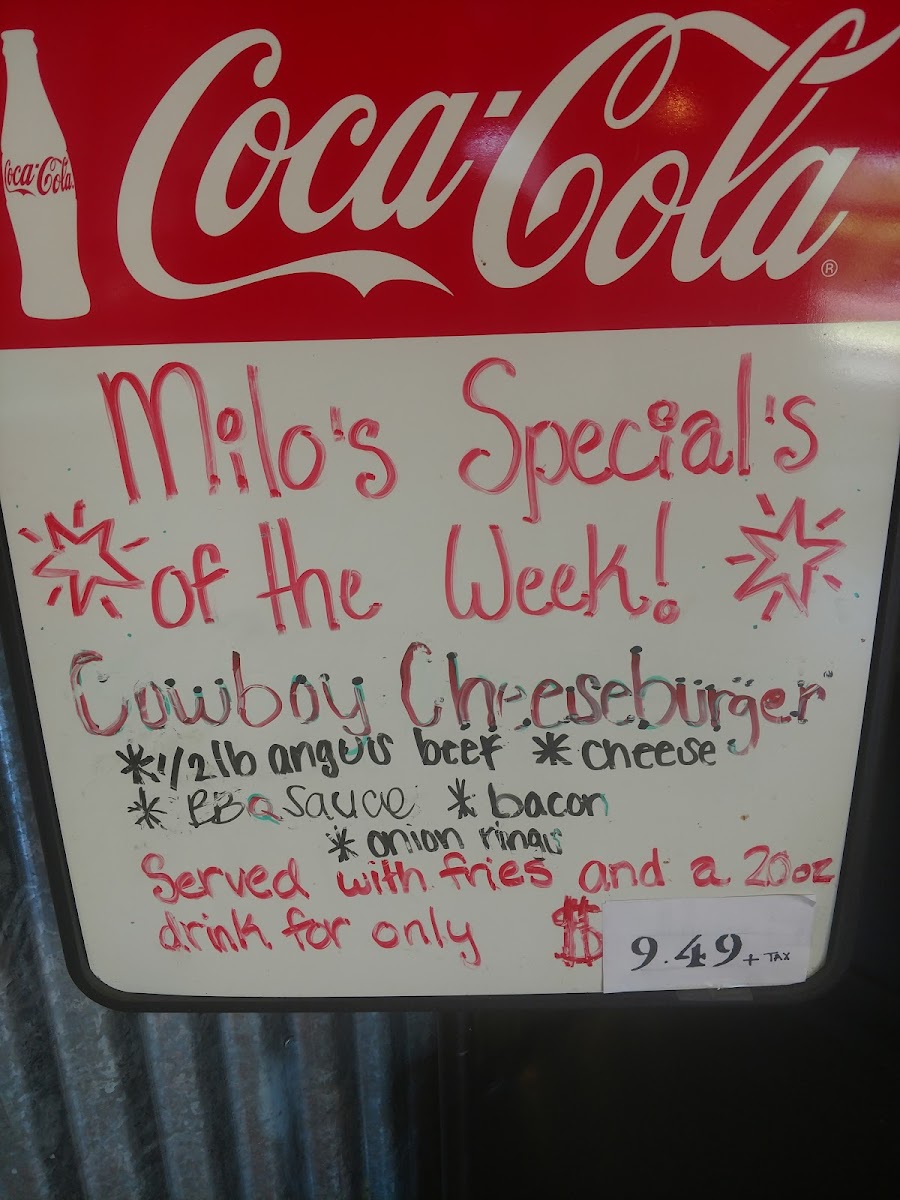 Coca-Cola
Coca-Cola®
Milo's Special's
of the Week!
Cowboy Cheeseburger
*1/2lb angus beef *cheese
* BBQ sauce * bacon
* onion rings
Served with fries and a 20oz
drink for only $9.49+ TAX